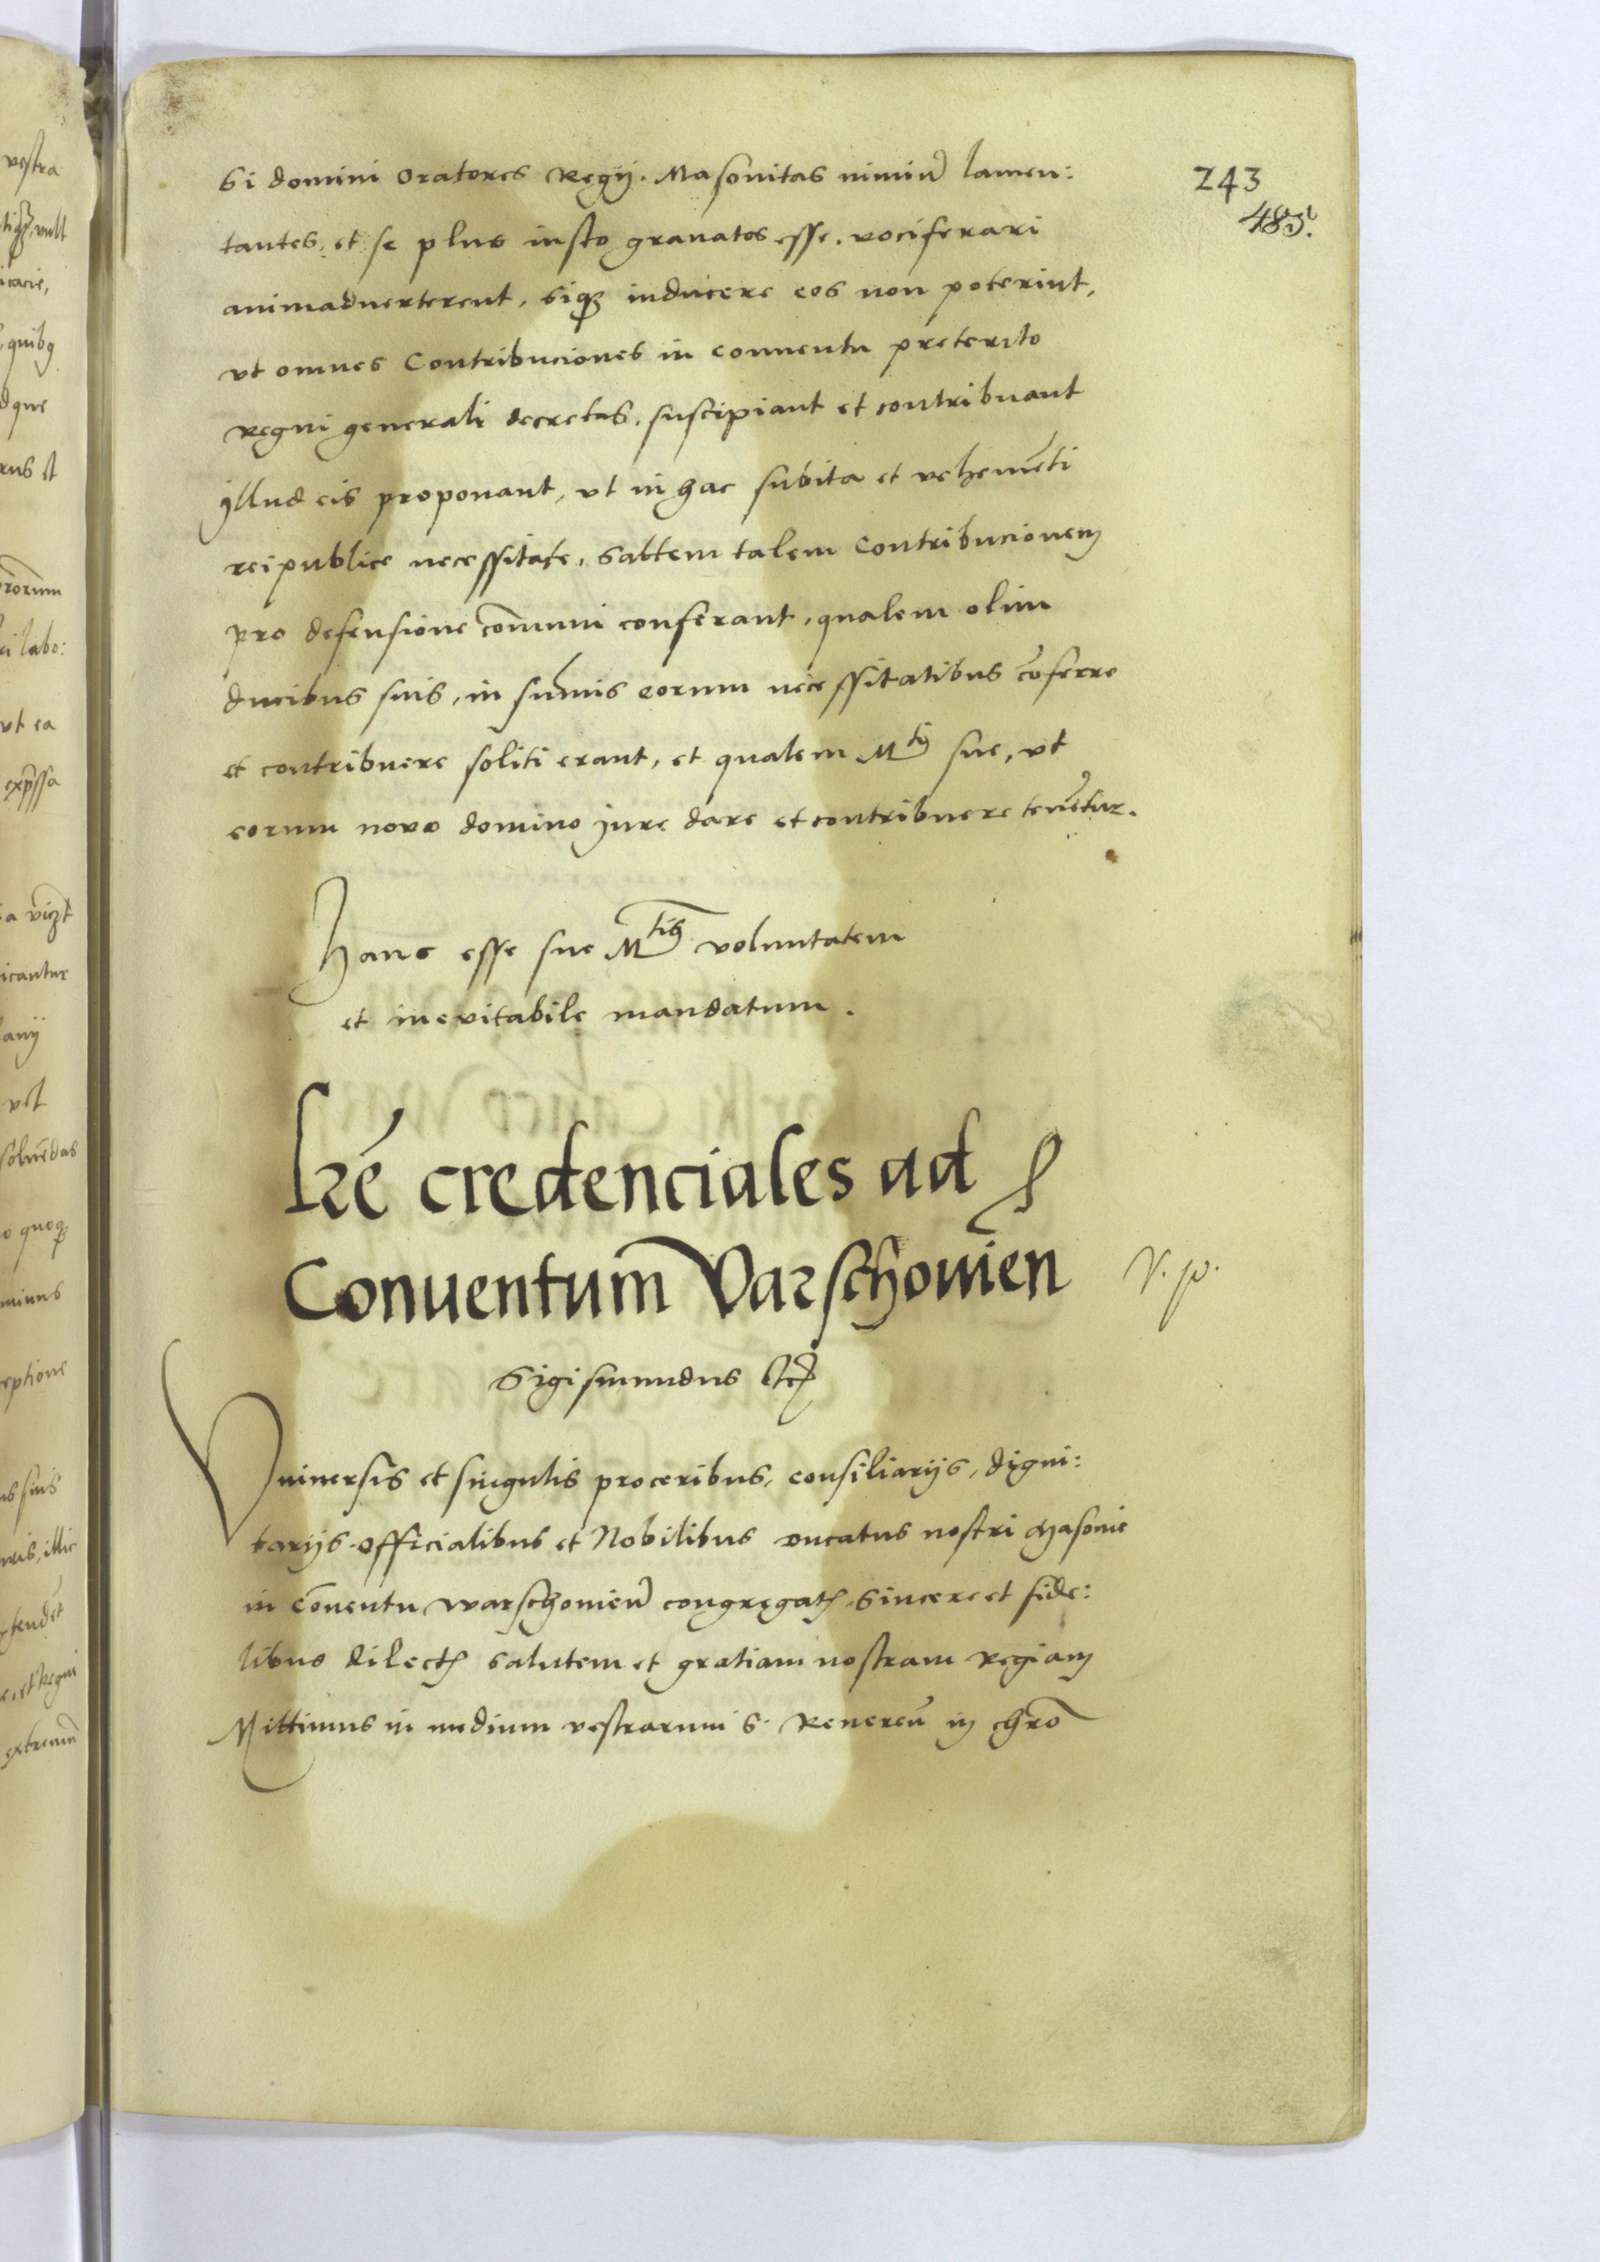 243
485.
Si domini Oratores Regij. Masouitas nimiu᷉ lamen:
tantes, et se plus iusto grauatos esse, vociferari
animaduerterent, siqȝ inducere eos non poterint,
vt omnes Contribuciones in conuentu preterito
Regni generali decretas, suscipiant et contribuant
jllud eis proponant, vt in hac subita et vehemēti
reipublice necessitate, saltem talem contribucionem
pro defensione cōmuni conferant, qualem olim
ducibus suis, in sūmis eorum necessitatibus cōferre
et contribuere soliti erant, et qualem Mti sue, vt
eorum novo domino jure dare et contribuere tenētur.
Hanc esse sue Mtis voluntatem
et ineuitabile mandatum.
Lrē credenciales ad
Conuentum Varschouien̄
V. p.
Sigismundus etc
Vniuersis et singulis proceribus, consiliarijs, digni:
tarijs officialibus et Nobilibus ducatus nostri Masouie
in cōuentu warschouien̄ congregatꝭ. Sincere et fide:
libus dilectꝭ salutem et gratiam nostram regiam
Mittimus in medium vestrarum s. Reueren̄ in chrō